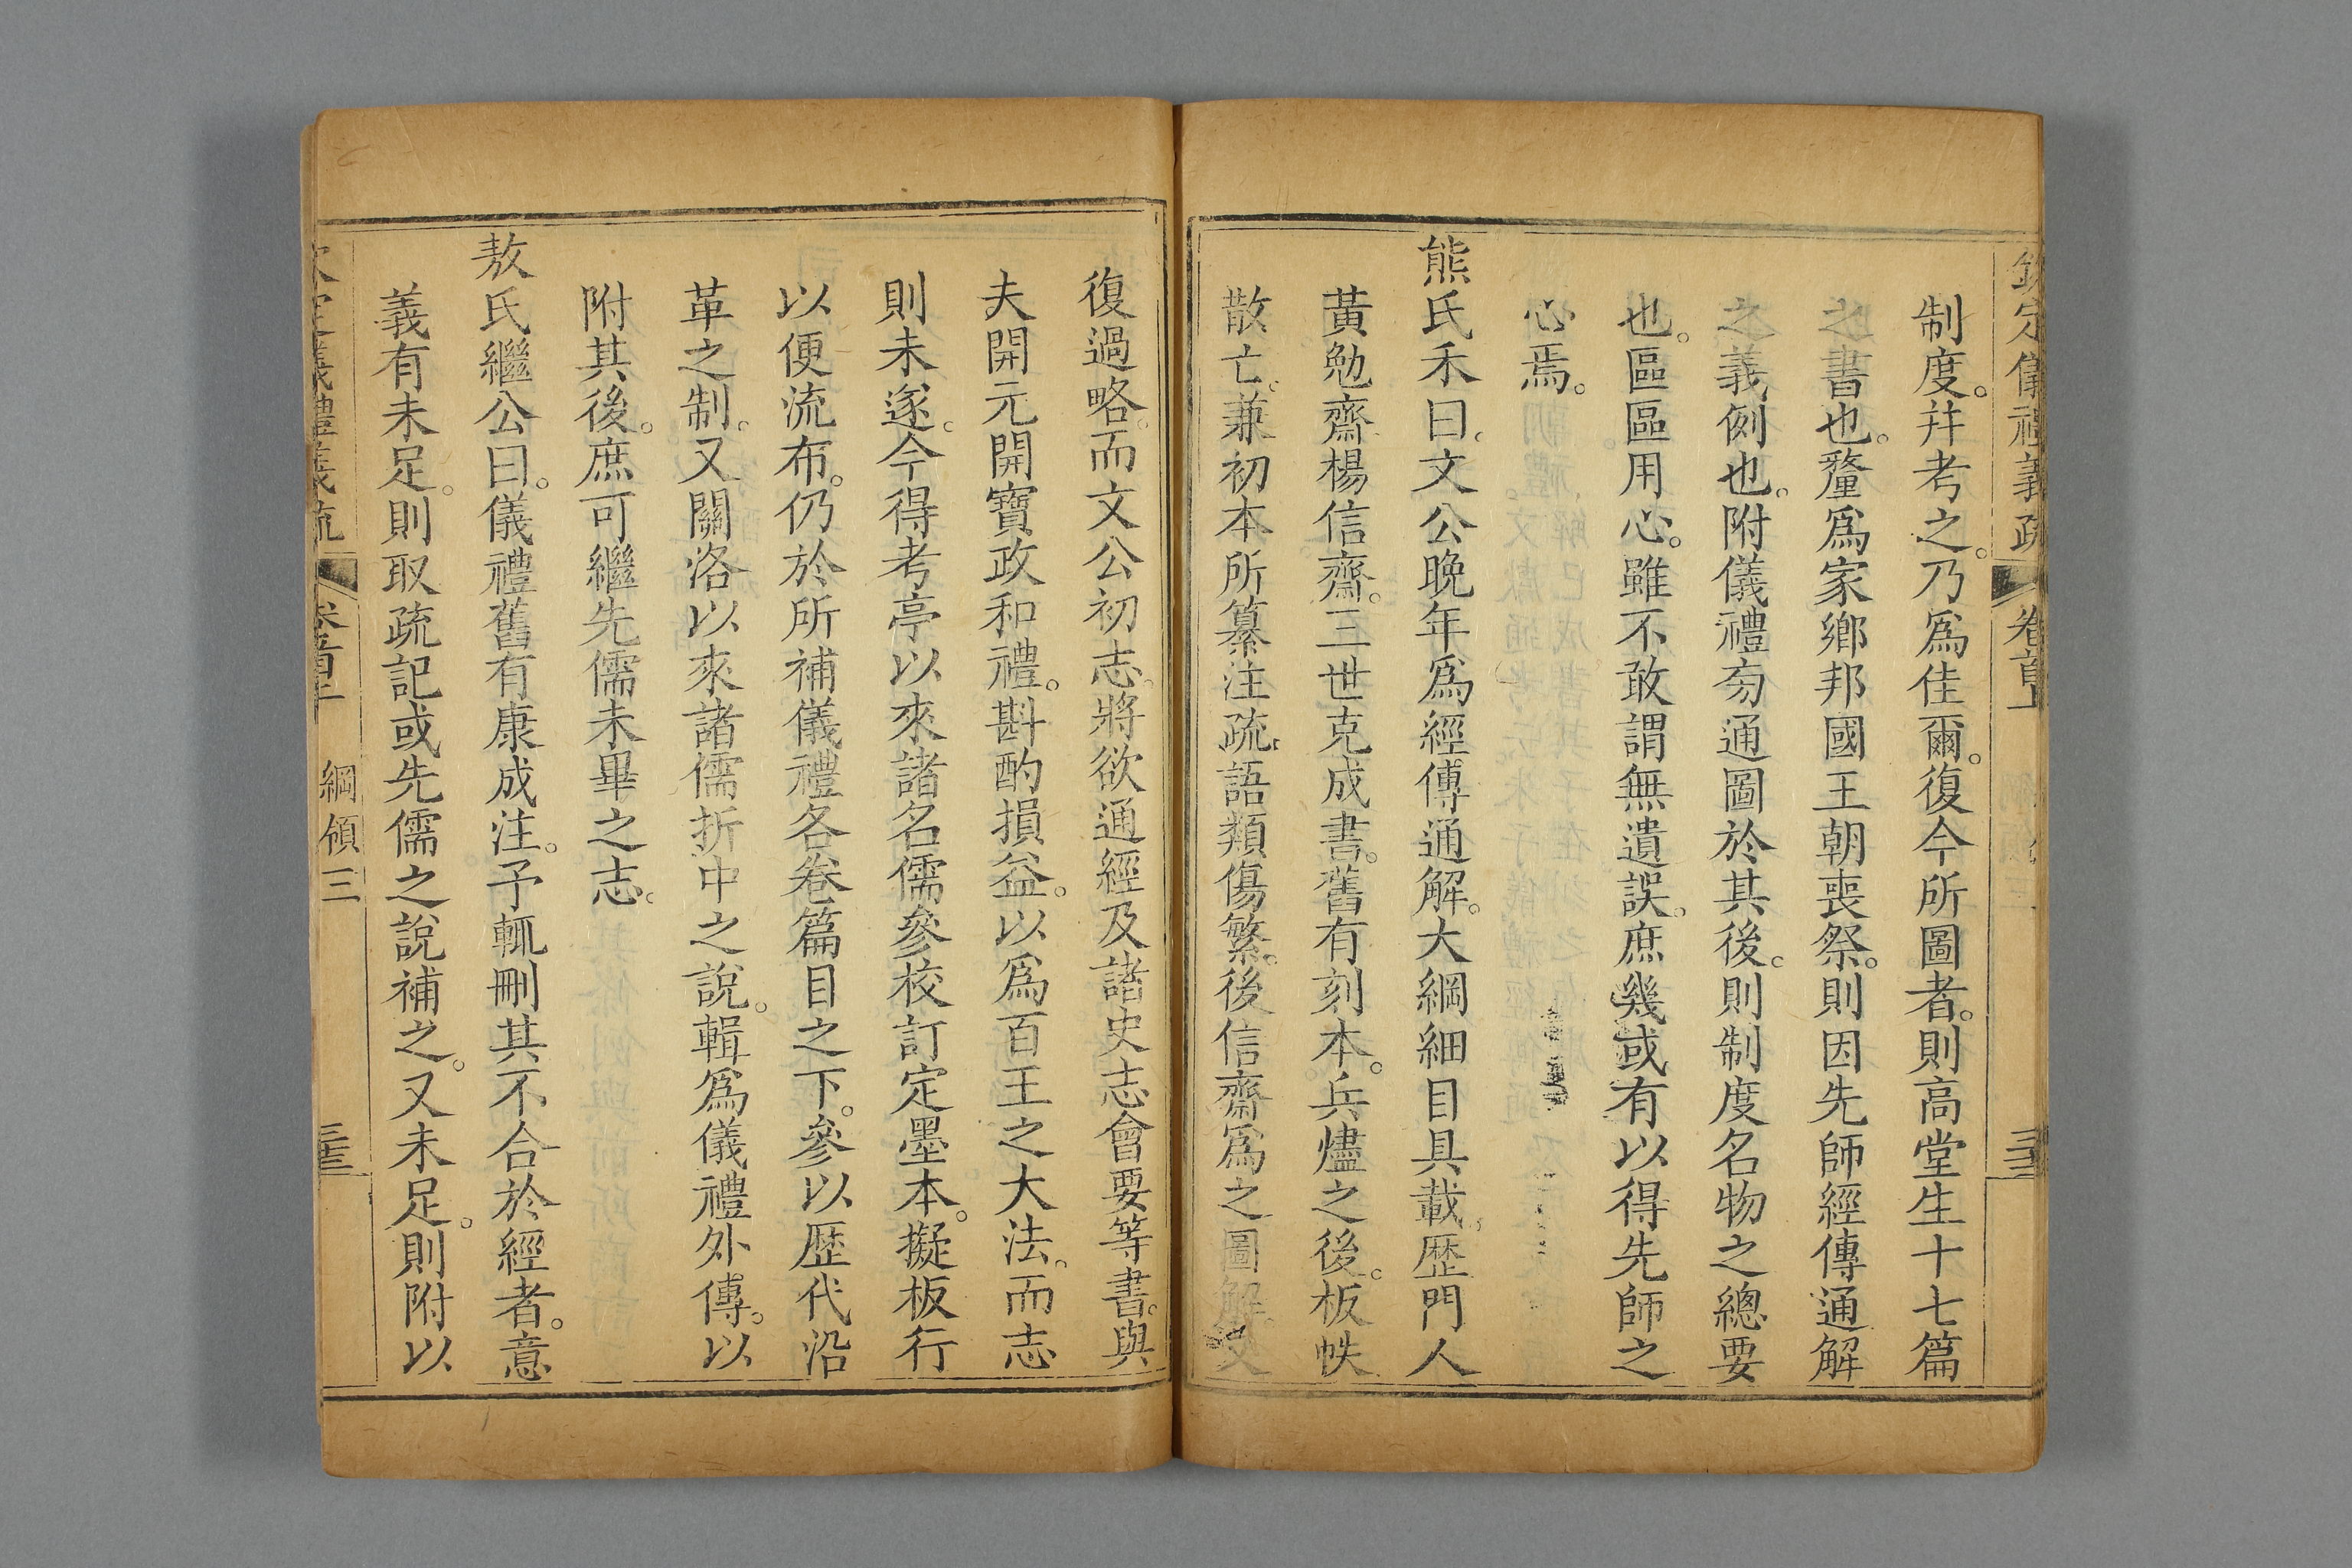 欽定儀禮義疏 卷首上
制度。幷考之。乃爲佳爾。復今所圖者。則高堂生十七篇
之書也。釐爲家鄉邦國王朝喪祭。則因先師經傳通解
之義例也。附儀禮旁通圖於其後。則制度名物之總要
也。區區用心。雖不敢謂無遺誤。庶幾或有以得先師之
心焉。
熊氏禾曰。文公晚年爲經傳通解。大綱細目具載。歷門人
黃勉齋楊信齋。三世克成書。舊有刻本。兵燼之後。板帙
散亡。兼初本所纂注疏。語類傷繁。後信齋爲之圖解。又
復過略。而文公初志。將欲通經及諸史志會要等書。與
夫開元開寶政和禮。斟酌損益。以爲百王之大法。而志
則未遂。今得考亭以來諸名儒參校訂定墨本。擬板行
以便流布。仍於所補儀禮各卷篇目之下。參以歷代沿
革之制。又關洛以來諸儒折中之說。輯爲儀禮外傳。以
附其後。庶可繼先儒未畢之志。
敖氏繼公曰。儀禮舊有康成注。予輒刪其不合於經者。意
義有未足。則取疏記或先儒之說補之。又未足。則附以
欽定儀禮義疏 卷首上 綱領三